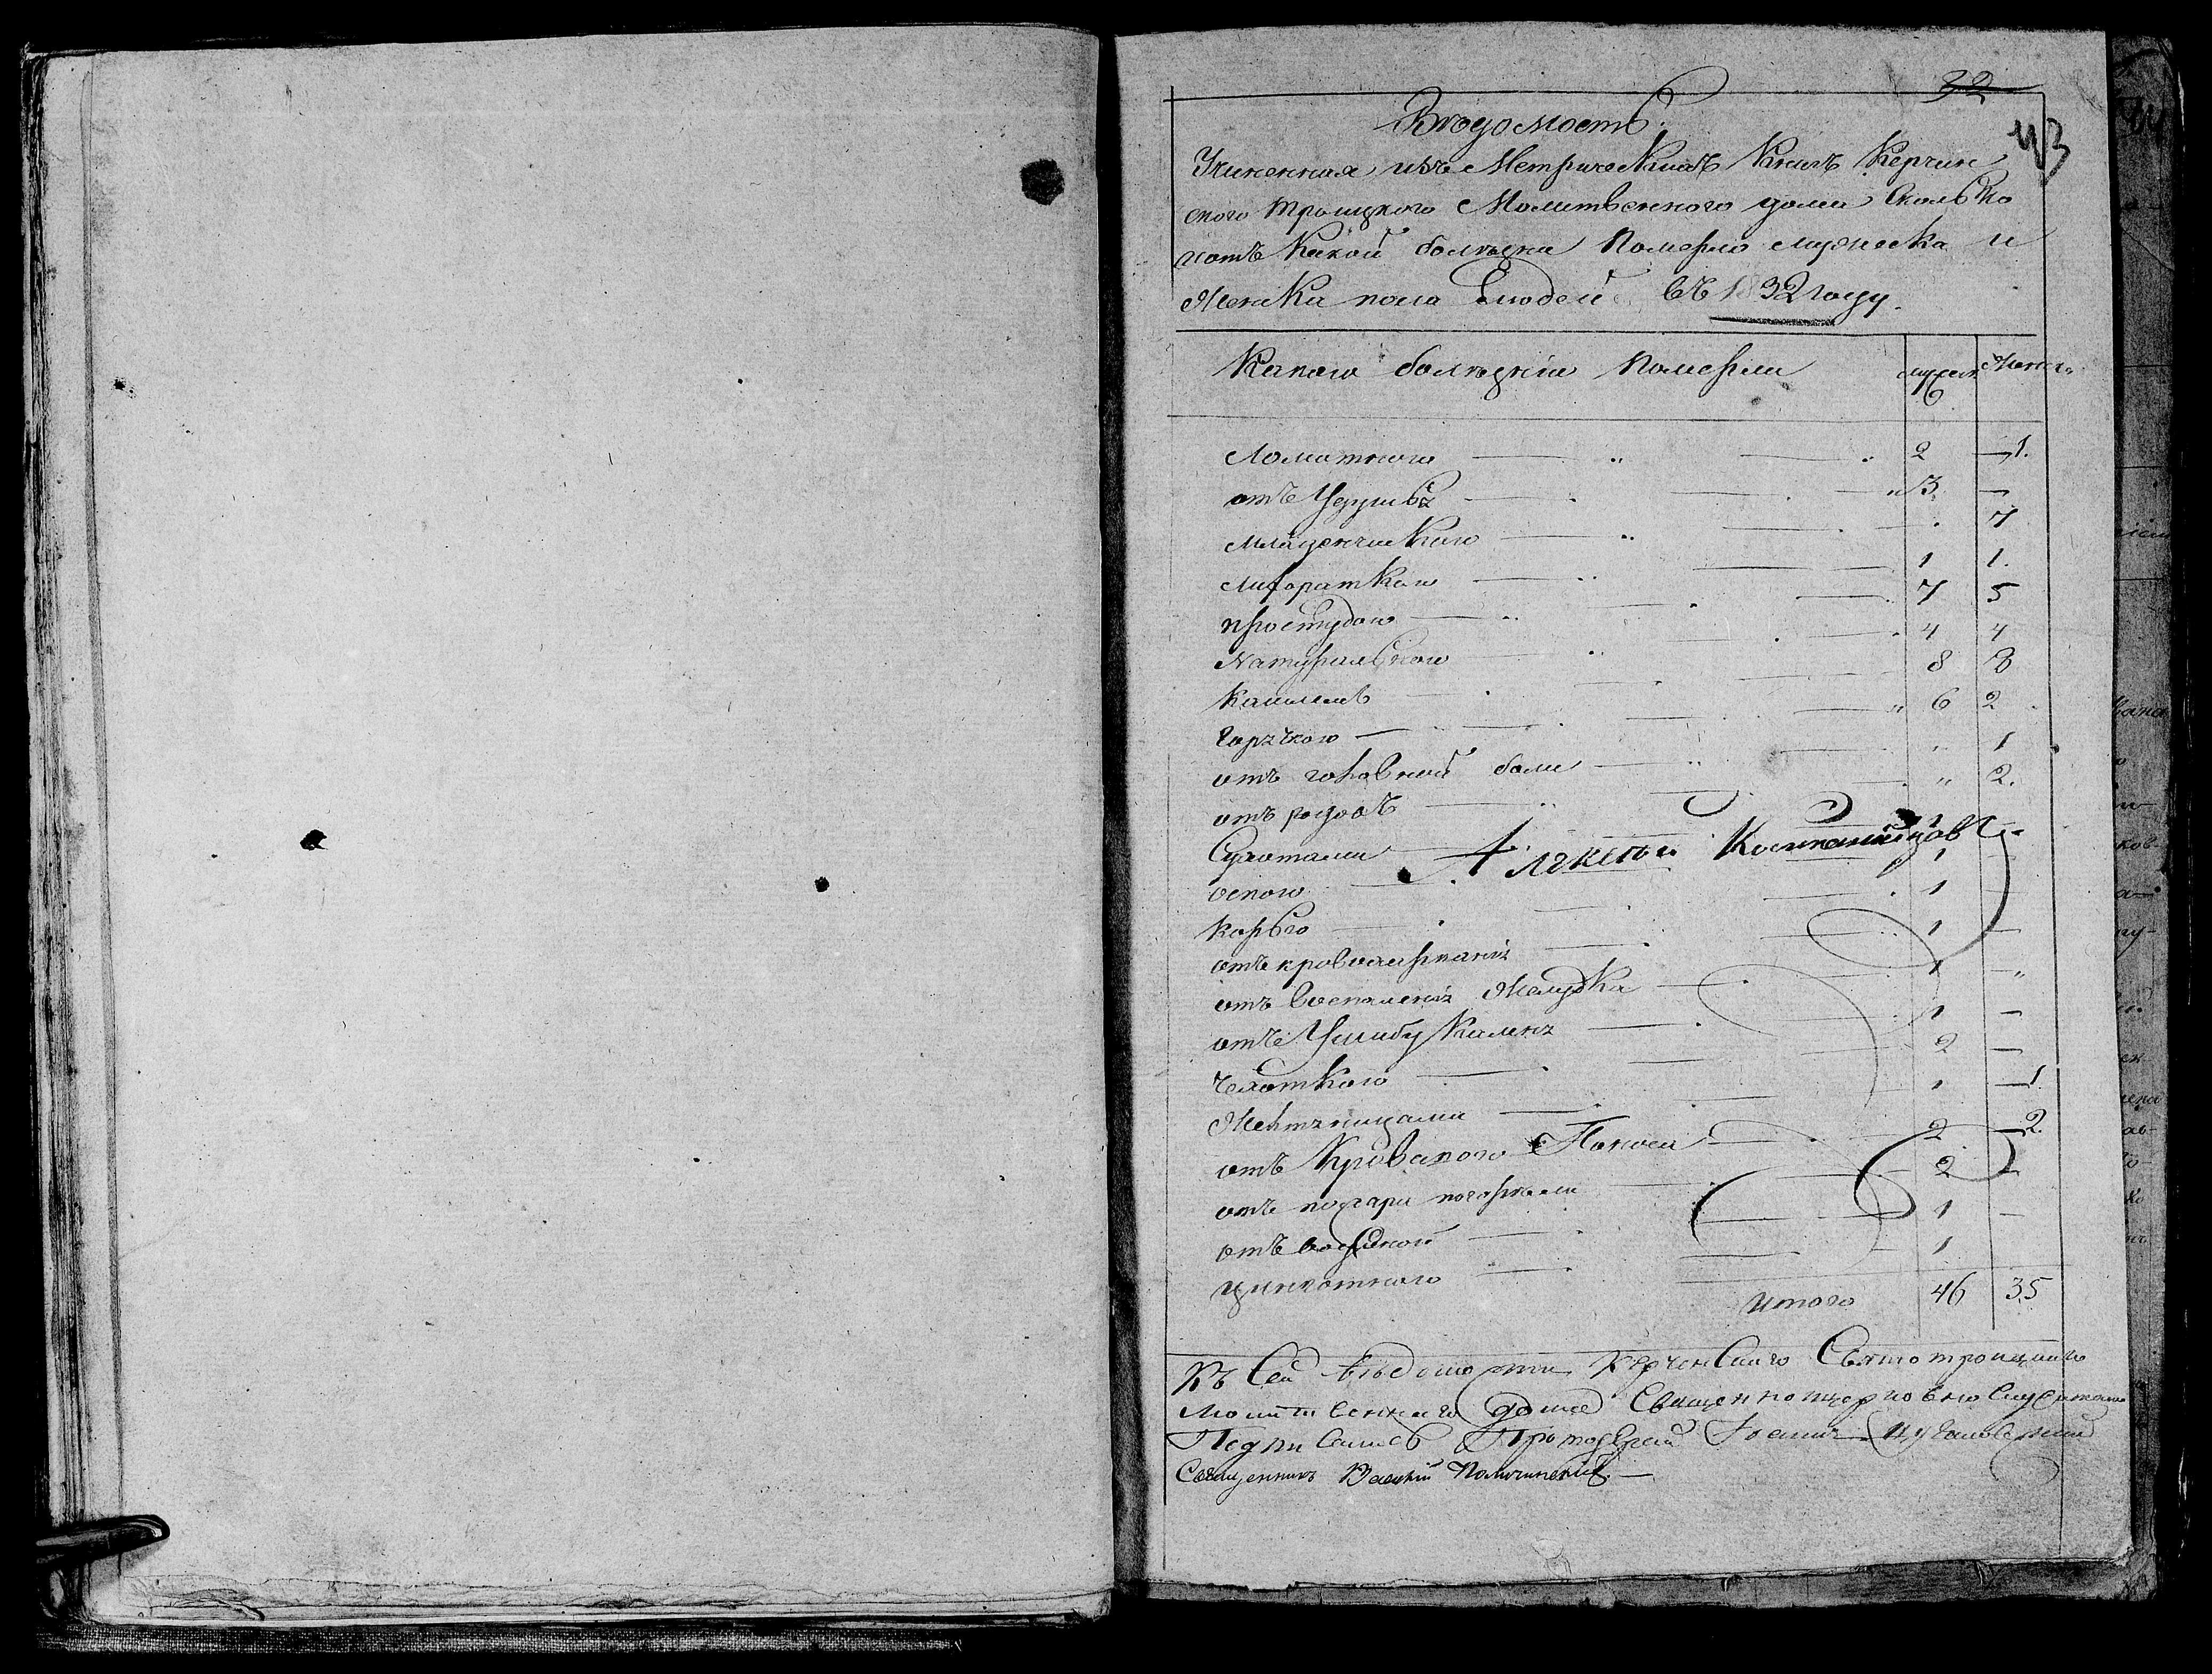 32
43
Вѣдомость.
Учиненная изъ Метрическихъ Книгъ Керчин
ского Троицкого Молитвенного дома Сколько
и отъ Какой болѣзни Померло мужеска и
Женска пола Людей въ 1832 году.
Какою болѣзнію Померли мужеск Женск.
Ломотною 2 1.
отъ Удушья 3 —
Младенческою " 7
Лихораткою 1 1.
простудою 7 5
Натуральною 4 4
Кашлемъ 8 8
Горячкою 6 2
отъ головной боли " 1
отъ родовъ " 2.
Сухотами
Алексѣй Константиновъ
оспою 1
Корью 1 —
отъ кровохарканія 1 —
отъ Воспаленія Желудка 1 "
отъ Ушибу Камня 1 —
Чехоткою 2 —
Желтяницами 1 1.
отъ Кроваваго Поноса 2 2.
отъ пожари погорѣли 2 —
отъ 1 —
цинготною 1
итого 46 35
Къ Сей вѣдомости Керченскаго Святотроицкаго
молитвеннаго дома Священноцерковно Служители
Подписались Протоіерей Іоаннъ
Священникъ Василій